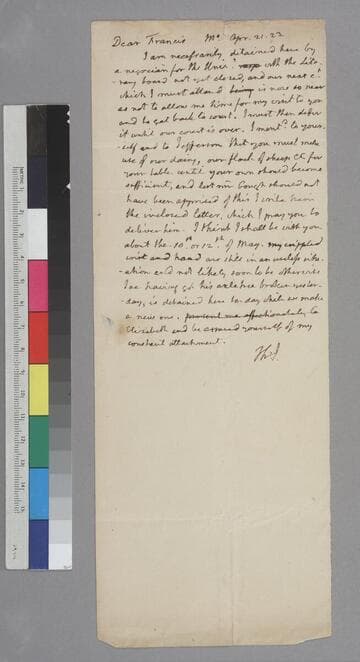 Dear Francis Mo. Apr. 21. 23
I am necessarily detained here by
a negocian for the Univ. with the Lite-
rary board not yet closed, and our next c.
which I must attend being is now so near
as not to allow me time for my visit to you
and to get back to court. I must then defer
it until our court is over. I mentd. to your-
self and to Jefferson that you must make
use of our dairy, our flock of sheep Etc for
your table until your own should become
sufficient, and lest mr Gough should not
have been apprised of this I write him
the inclosed letter, which I pray you to
deliver him. I think I shall be with you
about the 10th. or 12th. of May. my crippled
wrist and hand are still in an useless situ-
-ation and not likely soon to be otherwise.
having got his axletree broken yester-
-day, is detained here to-day while we make
a new one. present me affectionately to
Elizabeth and be assured yourself of my
constant attachment.
Th: J.